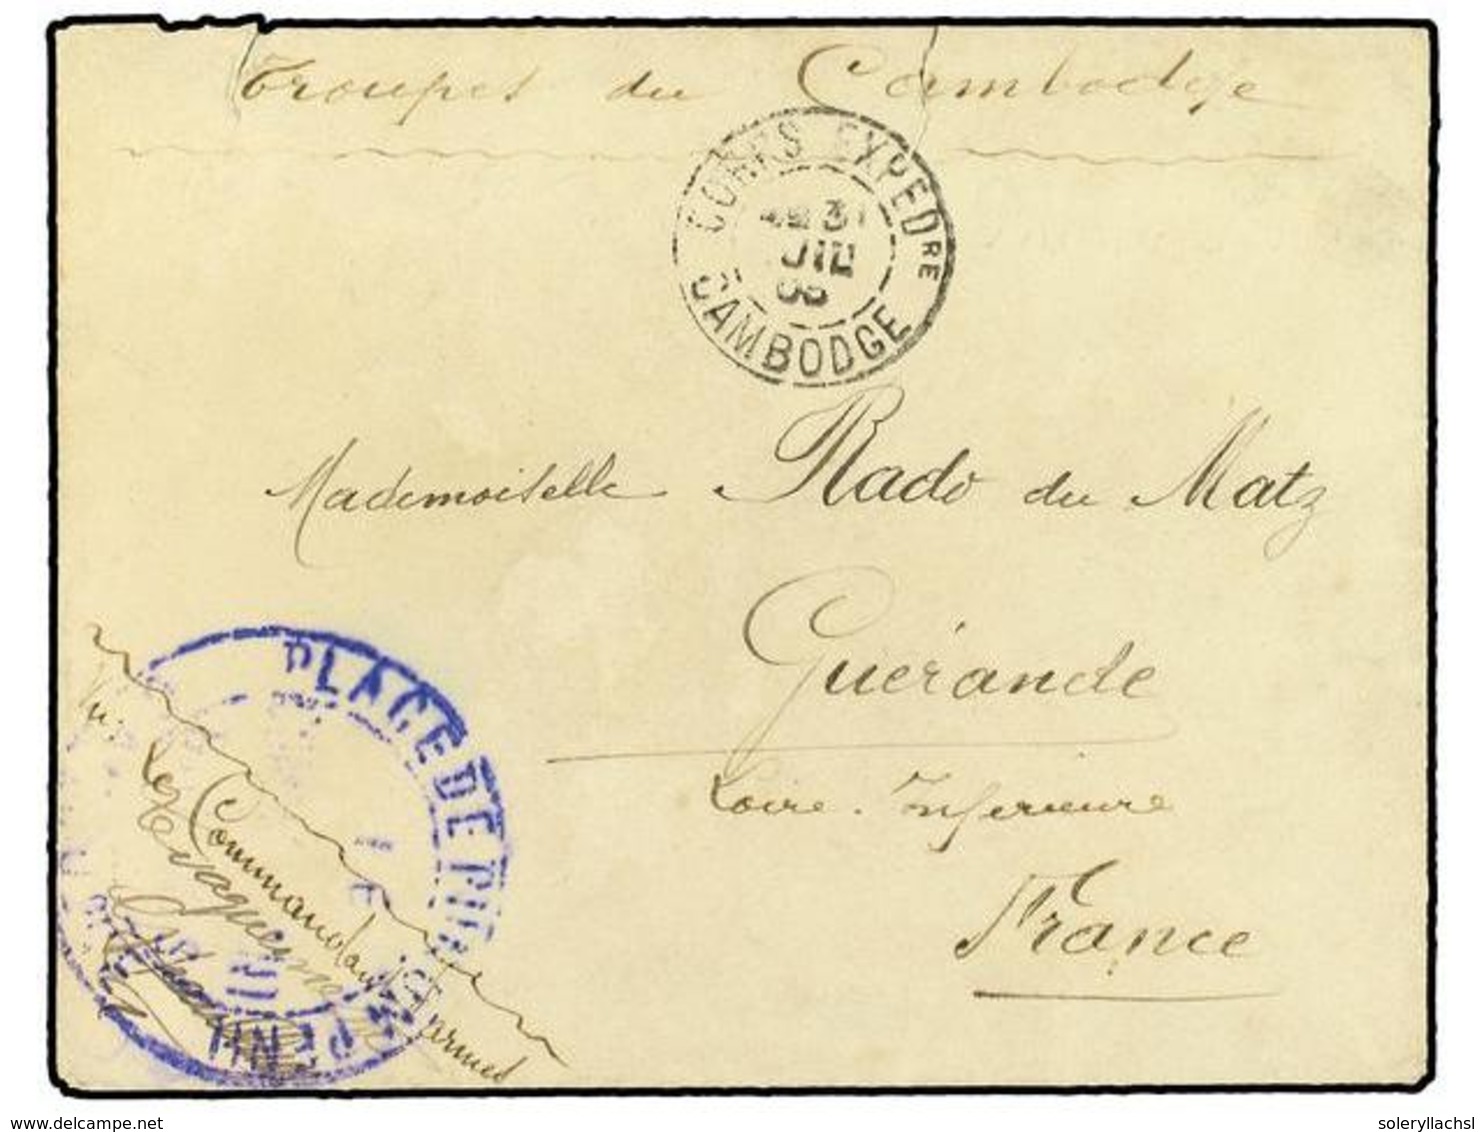 Troupes du Cambodge
CORPS EXPEDRE
31
JUIL
CAMBODGE
Mademoiselle Rado du Matz
Guérande
Loire-Inférieure
France
PLACE DE
Commandant
PENH
www.delcampe.net
soleryllachsl